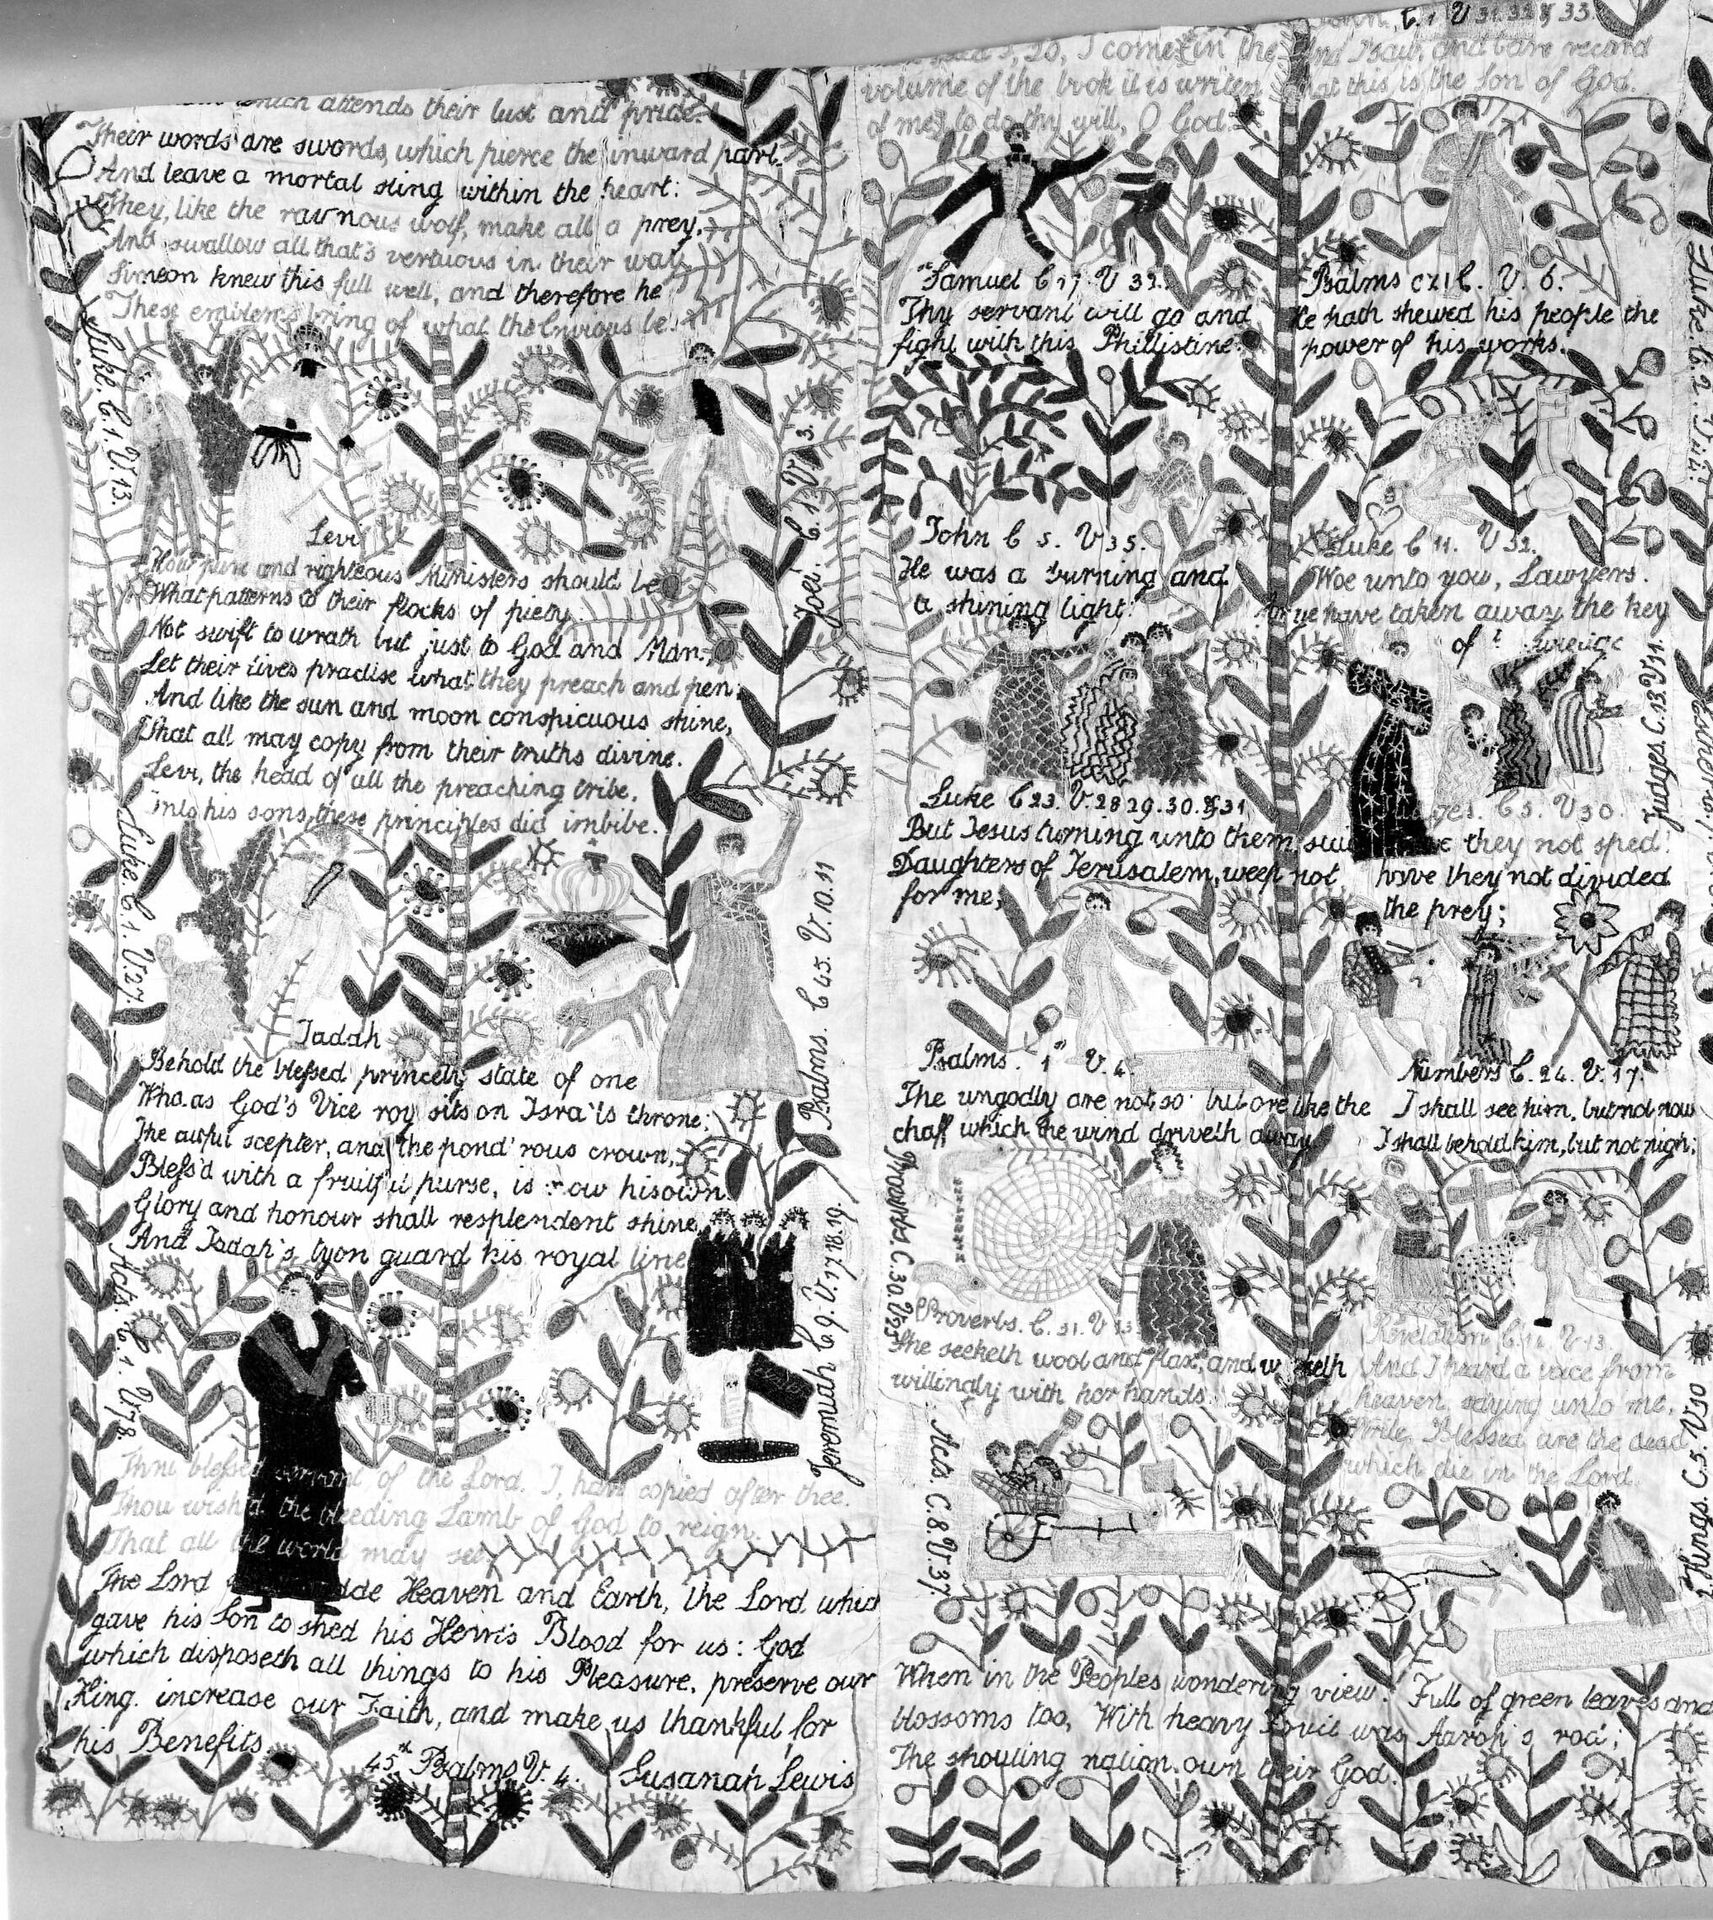 which attends their lust and pride.
Their words are swords, which pierce the inward part.
And leave a mortal sting within the heart:
They, like the rav'nous wolf, make all a prey,
And swallow all that's vertuous in their way
Simeon knew this full well, and therefore he
These emblems bring of what the Envious be.
Luke. C. 1. V. 13.
Joel. C. 1. V. 13.
Levi
How pure and righteous Ministers should be
What patterns to their flocks of piety.
Not swift to wrath but just to God and Man,
Let their lives practise what they preach and pen,
And like the sun and moon conspicuous shine,
That all may copy from their truths divine.
Levi, the head of all the preaching tribe,
into his sons, these principles did imbibe.
Luke. C. 1. V. 27.
Psalms. C 45. V. 10. 11
Iadah
Behold the blessed princely state of one
Who. as God's Vice roy sits on Isra'ls throne;
The awful scepter, and the pond'rous crown,
Bless'd with a fruitful purse, is now his own.
Glory and honour shall resplendent shine,
And Iadah's lyon guard his royal line
Acts C. 1. V. 18.
Jeremiah C 9. V. 17. 18. 19.
Thou blessed servant of the Lord. I, have copied after thee.
Thou wish'd the bleeding Lamb of God to reign.
That all the world may see.
The Lord Heaven and Earth, the Lord which
gave his Son to shed his Hearts Blood for us: God
which disposeth all things to his Pleasure, preserve our
King. increase our Faith, and make us thankful for
his Benefits
45th Psalms V. 4. Susanah Lewis
I come in the
volume of the book it is writen
of me, to do thy will, O God.
C. 1 V 31. 32 & 33.
And I saw, and bare record
that this is the Son of God.
Samuel C 17. V 32.
Thy servant will go and
fight with this Phillistine.
Psalms CXI C. V. 6.
He hath shewed his people the
power of his works.
Luke. C. 2. V
John C 5. V 35.
He was a burning and
a shining light:
Luke C 11. V 52.
Woe unto you, Lawyers.
for ye have taken away the key
of
Judges. C. 13. V 11.
Esther
Luke C 23. V. 28 29. 30. & 31
But Jesus turning unto them, said
Daughters of Jerusalem, weep not
for me,
Judges. C 5. V 30.
they not sped:
have they not divided
the prey;
Psalms. 1st V. 4.
The ungodly are not so: but are like the
chaff which the wind driveth away.
Numbers C. 24. V. 17.
I shall see him, but not now
I shall behold him, but not nigh;
Proverbs. C. 30. V 25
Proverbs. C. 31. V 13
She seeketh wool and flax, and worketh
willingly with her hands.
Revelation C. 14. V 13.
And I heard a voice from
heaven, saying unto me,
Write, Blessed are the dead
which die in the Lord.
Acts. C. 8. V. 37.
Kings. C. 5. V. 10
When in the Peoples wondering view. Full of green leaves and
blossoms too, With heavy was Aaron's rod;
The shouting nation own their God.